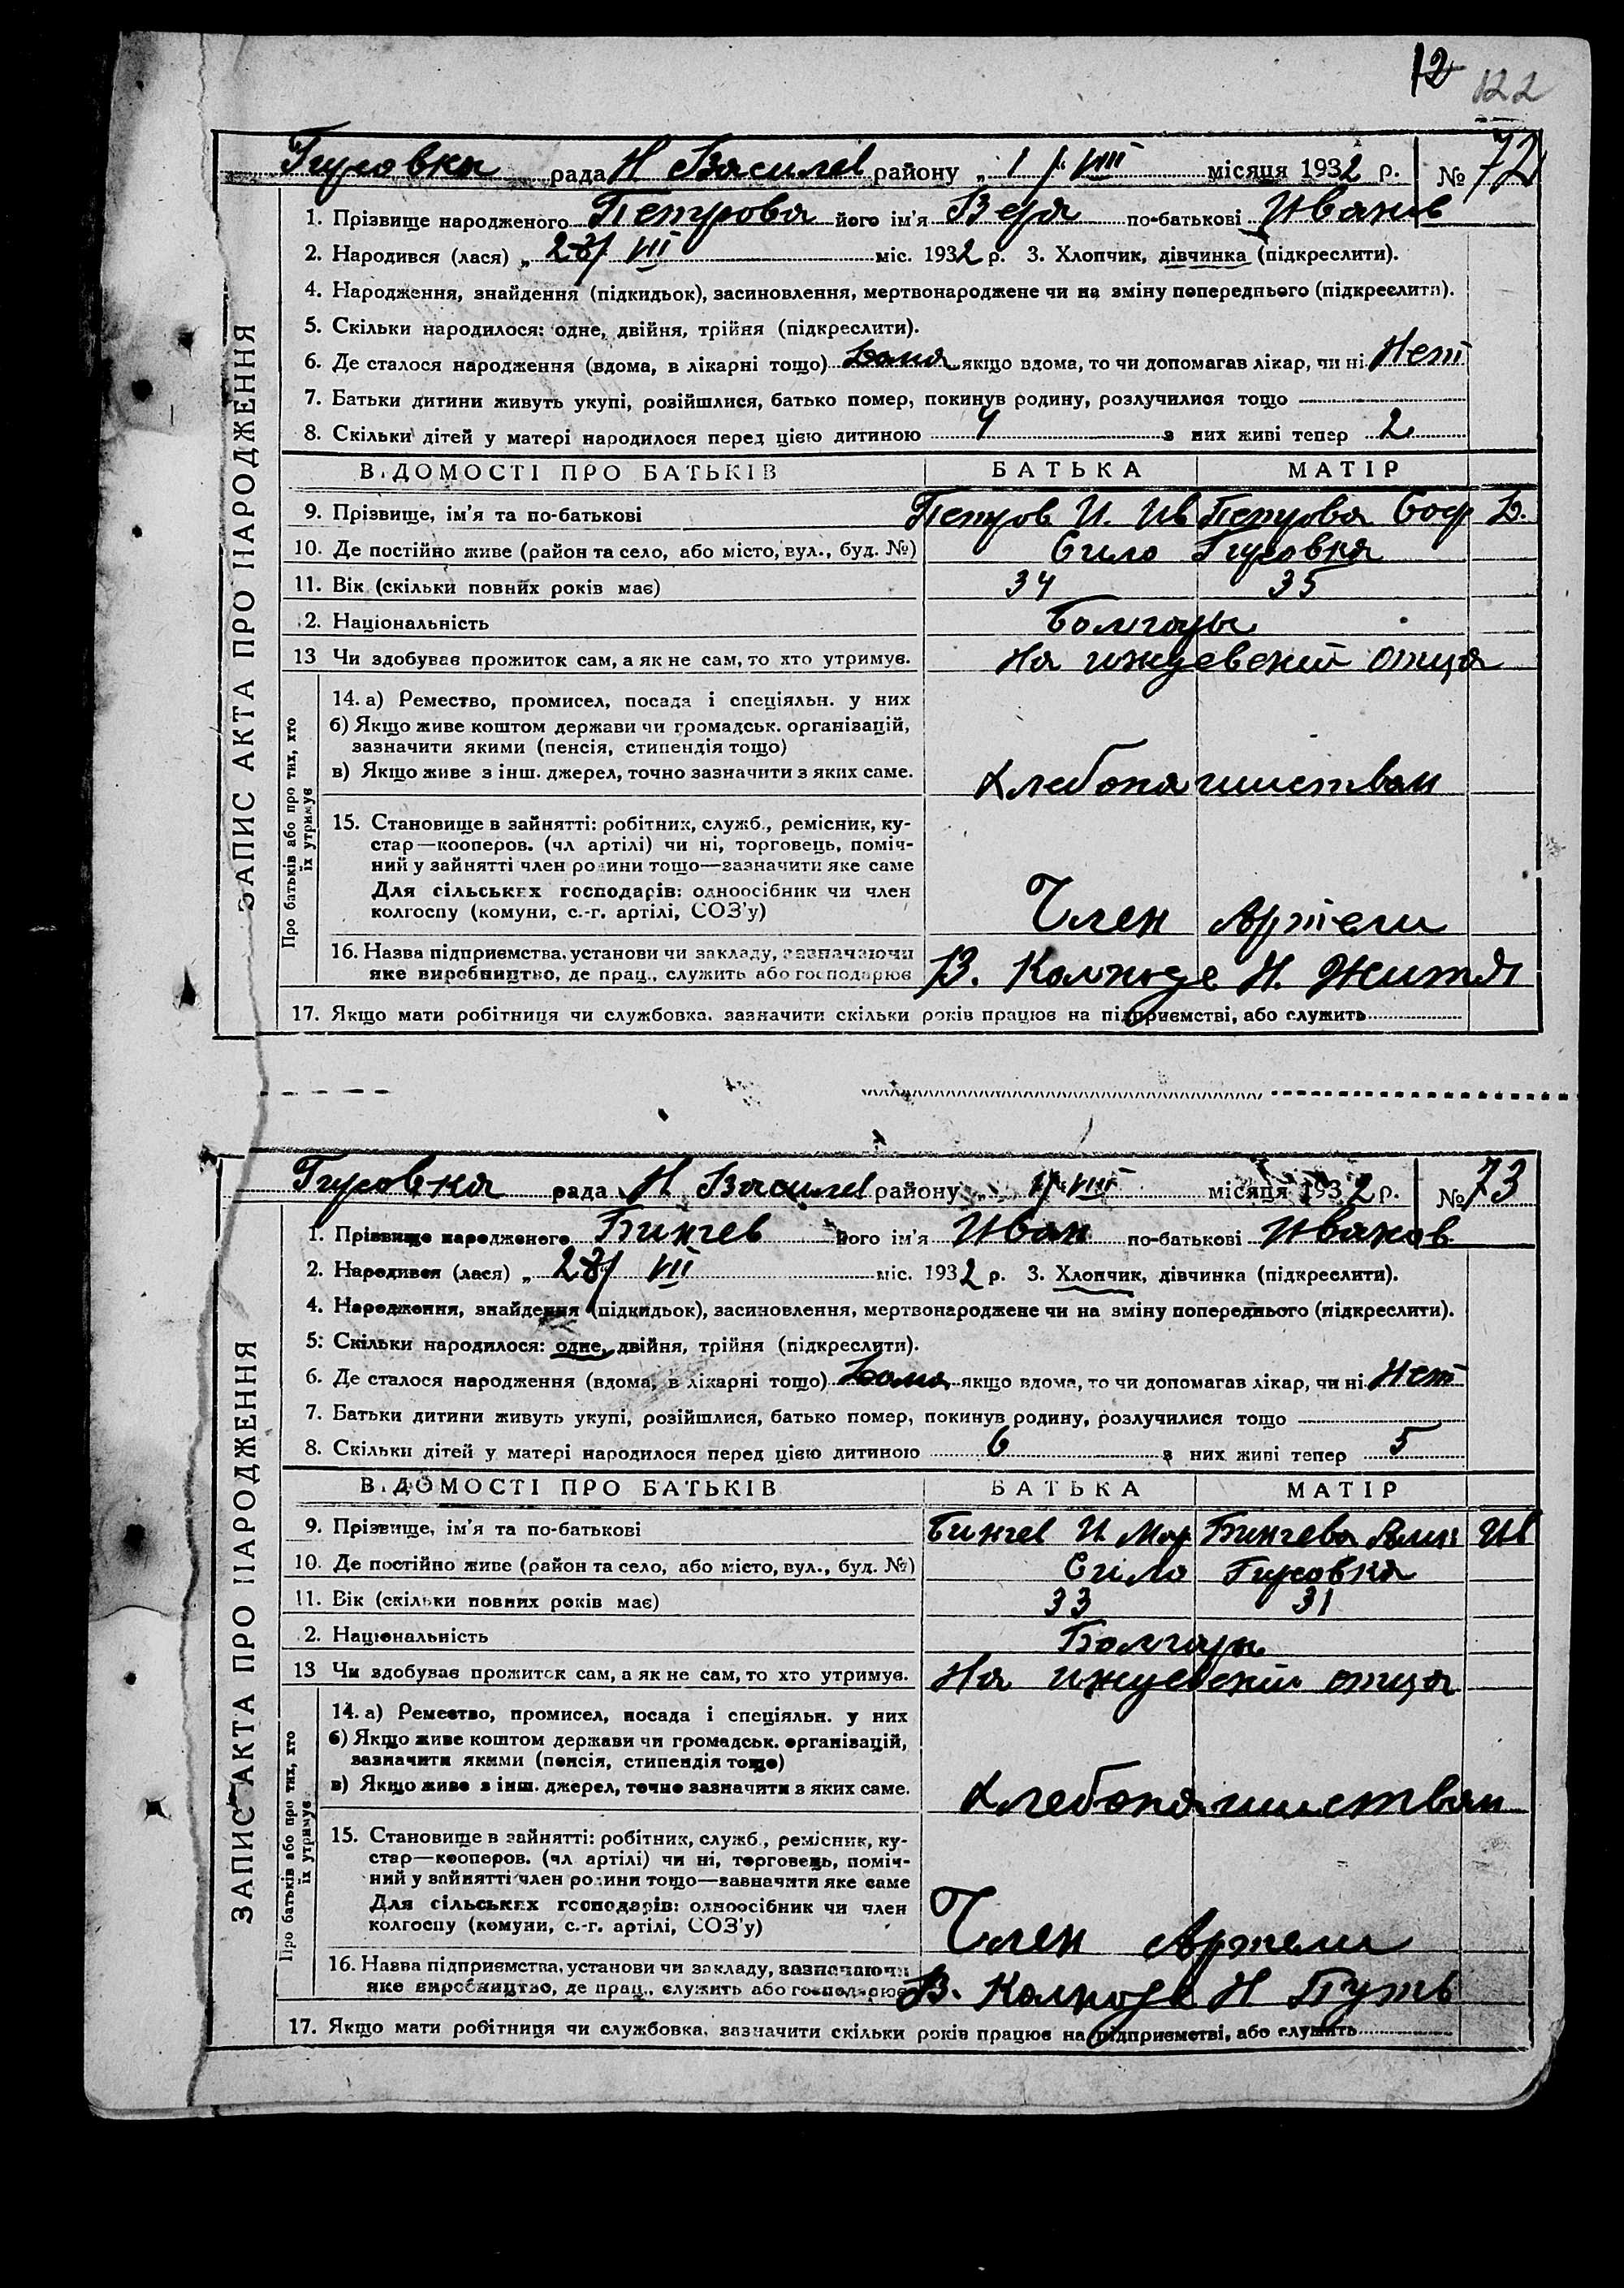 12
122
Гуровка рада Н Василев району „ 1 / VIII місяця 1932 р. № 72
1. Прізвище народженого Петрова його ім'я Вера по-батькові Иванов
2. Народився (лася) „ 28/ VII міс. 1932 р. 3. Хлопчик, дівчинка (підкреслити).
4. Народження, знайдення (підкидьок), засиновлення, мертвонароджене чи на зміну попереднього (підкреслити).
5. Скільки народилося: одне, двійня, трійня (підкреслити).
6. Де сталося народження (вдома, в лікарні тощо) Дома якщо вдома, то чи допомагав лікар, чи ні Нет
7. Батьки дитини живуть укупі, розійшлися, батько помер, покинув родину, розлучилися тощо
8. Скільки дітей у матері народилося перед цією дитиною 4 з них живі тепер 2
ЗАПИС АКТА ПРО НАРОДЖЕННЯ
В.ДОМОСТІ ПРО БАТЬКІВ БАТЬКА МАТІР
9. Прізвище, ім'я та по-батькові Петров И. Ив Петрова Соф Д.
10. Де постійно живе (район та село, або місто, вул., буд. №) Село Гуровка
11. Вік (скільки повних років має) 34 35
2. Національність Болгары
13 Чи здобуває прожиток сам, а як не сам, то хто утримує. На иждевений отца
Про батьків або про тих, хто їх утримує
14. а) Ремество, промисел, посада і спеціяльн. у них
б) Якщо живе коштом держави чи громадськ. організацій,
зазначити якими (пенсія, стипендія тощо)
в) Якщо живе з інш. джерел, точно зазначити з яких саме. Хлебопашиством
15. Становище в зайнятті: робітник, служб., ремісник, ку-
стар—кооперов. (чл артілі) чи ні, торговець, поміч-
ний у зайнятті член родини тощо—зазначити яке саме
Для сільських господарів: одноосібник чи член
колгоспу (комуни, с.-г. артілі, СОЗ'у) Член Артели
16. Назва підприємства, установи чи закладу, зазначаючи
яке виробництво, де прац., служить або господарює В. Колхозе Н. Житя
17. Якщо мати робітниця чи службовка, зазначити скільки років працює на підприємстві, або служить
Гуровка рада Н Василев району „ 1/VIII місяця 1932 р. № 73
1. Прізвище народженого Бингев його ім'я Иван по-батькові Иванов
2. Народився (лася) „ 28/ VII міс. 1932 р. 3. Хлопчик, дівчинка (підкреслити).
4. Народження, знайдення (підкидьок), засиновлення, мертвонароджене чи на зміну попереднього (підкреслити).
5: Скільки народилося: одне, двійня, трійня (підкреслити).
6. Де сталося народження (вдома, в лікарні тощо) Дома якщо вдома, то чи допомагав лікар, чи ні Нет
7. Батьки дитини живуть укупі, розійшлися, батько помер, покинув родину, розлучилися тощо
8. Скільки дітей у матері народилося перед цією дитиною 6 з них живі тепер 5
ЗАПИС АКТА ПРО НАРОДЖЕННЯ
В.ДОМОСТІ ПРО БАТЬКІВ БАТЬКА МАТІР
9. Прізвище, ім'я та по-батькові Бингев И Мар Бингева Ив
10. Де постійно живе (район та село, або місто, вул., буд. №) Село Гуровка
11. Вік (скільки повних років має) 33 31
2. Національність Болгары
13 Чи здобуває прожиток сам, а як не сам, то хто утримує. На иждевений отца
Про батьків або про тих, хто їх утримує
14. а) Ремество, промисел, посада і спеціяльн. у них
б) Якщо живе коштом держави чи громадськ. організацій,
зазначити якими (пенсія, стипендія тощо)
в) Якщо живе з інш. джерел, точно зазначити з яких саме. Хлебопашиством
15. Становище в зайнятті: робітник, служб., ремісник, ку-
стар—кооперов. (чл артілі) чи ні, торговець, поміч-
ний у зайнятті член родини тощо—зазначити яке саме
Для сільських господарів: одноосібник чи член
колгоспу (комуни, с.-г. артілі, СОЗ'у) Член Артели
16. Назва підприємства, установи чи закладу, зазначаючи
яке виробництво, де прац., служить або господарює В. Колхозе Н Путь
17. Якщо мати робітниця чи службовка, зазначити скільки років працює на підприємстві, або служить